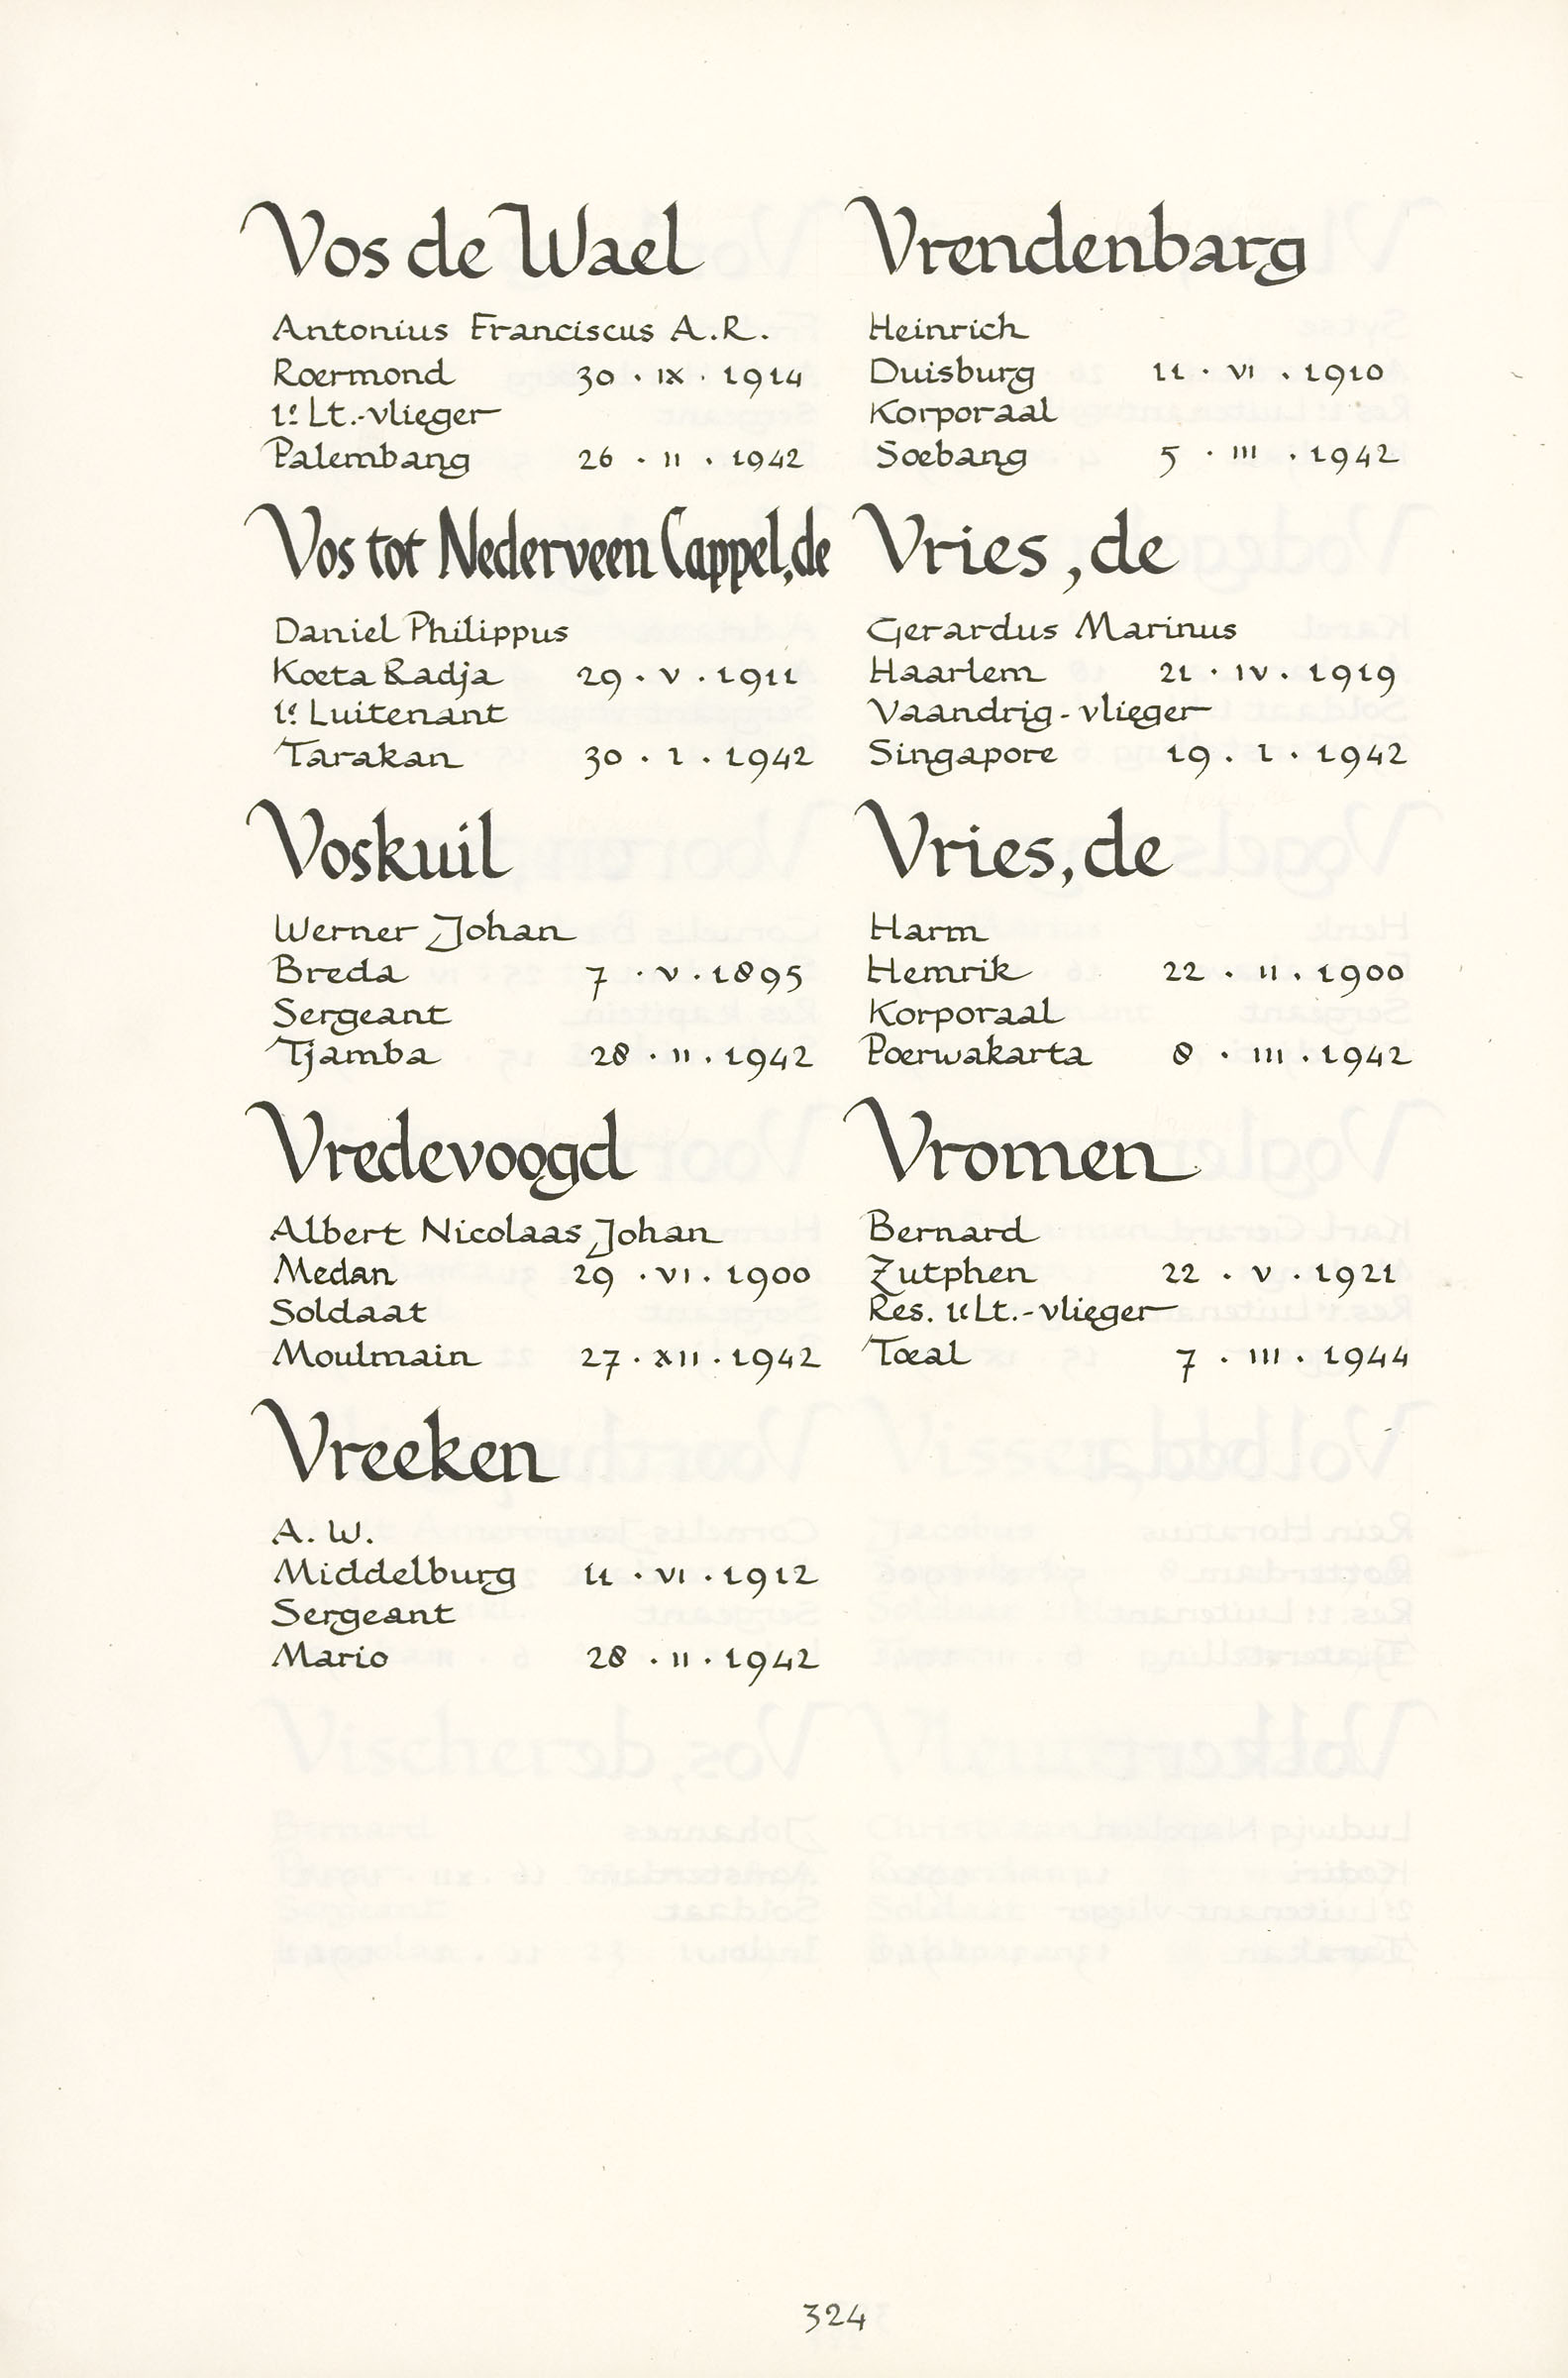 Vos de Wael
Antonius Franciscus A.R.
Roermond 30 · IX · 1914
1e Lt.-vlieger
Palembang 26 · II · 1942
Vos tot Nederveen Cappel, de
Daniel Philippus
Koeta Radja 29 · V · 1911
1e Luitenant
Tarakan 30 · 1 · 1942
Voskuil
Werner Johan
Breda 7 · V · 1895
Sergeant
Tjamba 28 · II · 1942
Vredevoogd
Albert Nicolaas Johan
Medan 29 · VI · 1900
Soldaat
Moulmain 27 · XII · 1942
Vreeken
A. W.
Middelburg 11 · VI · 1912
Sergeant
Mario 28 · II · 1942
Vrendenbarg
Heinrich
Duisburg 11 · VI · 1910
Korporaal
Soebang 5 · III · 1942
Vries, de
Gerardus Marinus
Haarlem 21 · IV · 1919
Vaandrig-vlieger
Singapore 19 · 1 · 1942
Vries, de
Harm
Hemrik 22 · II · 1900
Korporaal
Poerwakarta 8 · III · 1942
Vromen
Bernard
Zutphen 22 · V · 1921
Res. 1e Lt.-vlieger
Toeal 7 · III · 1944
324